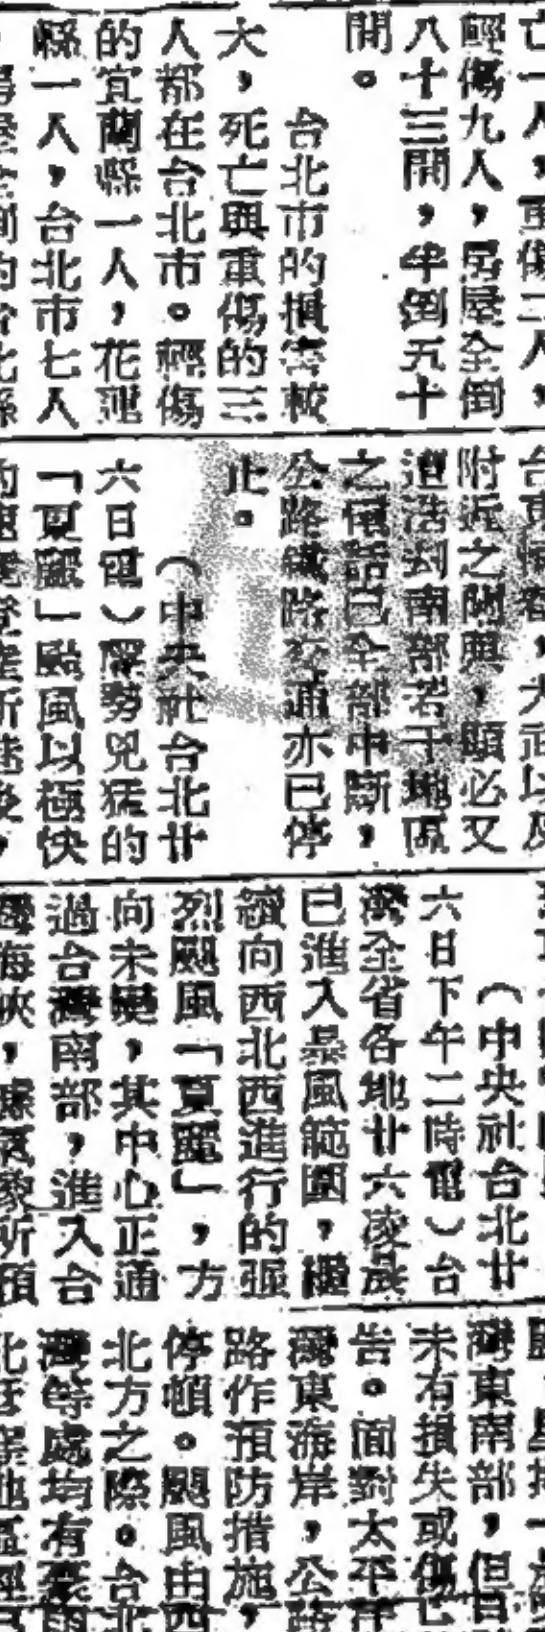 亡一人，重傷二人，
輕傷九人，房屋全倒
八十三間，半倒五十
間。
台北市的損害較
大，死亡與重傷的三
人都在台北市。輕傷
的宜蘭縣一人，花蓮
縣一人，台北市七人
附近之關與，顯必又
遭浩刦南部若干地區
之電話已全部中斷，
公路鐵路交通亦已停
止。
（中央社台北廿
六日電）來勢兇猛的
「夏麗」颱風以極快
（中央社台北廿
六日下午二時電）台
灣全省各地廿六凌晨
已進入暴風範圍，繼
續向西北西進行的強
烈颱風「夏麗」，方
向未變，其中心正通
過台灣南部，進入台
灣海峽，據氣象所預
灣東南部，但目
未有損失或傷亡
告。面對太平洋
灣東海岸，公路
路作預防措施，
停頓。颱風由西
北方之際。台北
灣等處均有豪雨